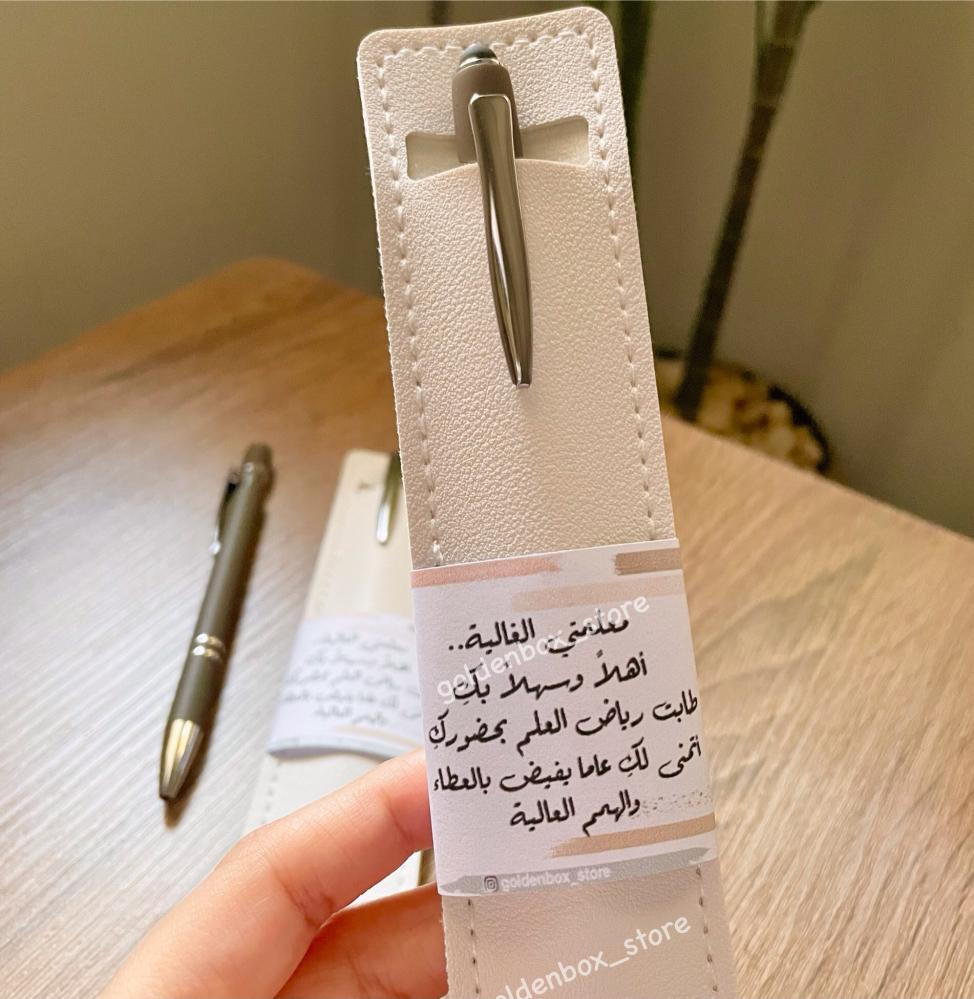 معلمتي الغالية..
أهلاً وسهلاً بكِ
طابت رياض العلم بحضوركِ
أتمنى لكِ عاما يفيض بالعطاء
والهمم العالية
goldenbox_store
goldenbox_store
goldenbox_store